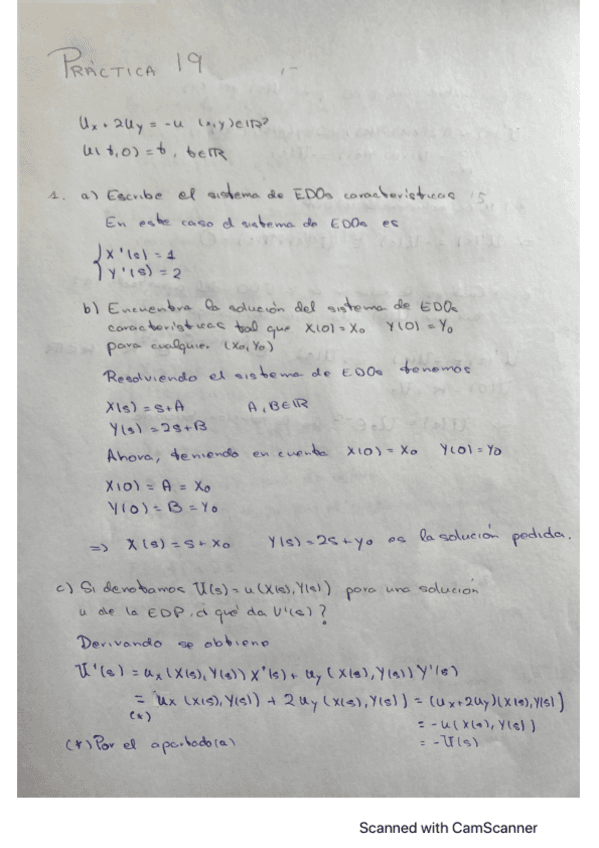 PRÁCTICA 19
Ux + 2Uy = -u (x,y)∈ℝ²
u(t,0) = t, t∈ℝ
1. a) Escribe el sistema de EDOs características
En este caso el sistema de EDOs es
{ X'(s) = 1
Y'(s) = 2
b) Encuentra la solución del sistema de EDOs
características tal que X(0)=X0 Y(0)=Y0
para cualquier (X0,Y0)
Resolviendo el sistema de EDOs tenemos
X(s) = s+A A,B∈ℝ
Y(s) = 2s+B
Ahora, teniendo en cuenta X(0)=X0 Y(0)=Y0
X(0) = A = X0
Y(0) = B = Y0
=> X(s) = s+x0 Y(s) = 2s+y0 es la solución pedida.
c) Si denotamos U(s) = u(X(s),Y(s)) para una solución
u de la EDP, ¿ qué da U'(s)?
Derivando se obtiene
U'(s) = ux(X(s),Y(s)) X'(s) + uy(X(s),Y(s)) Y'(s)
= ux(X(s),Y(s)) + 2uy(X(s),Y(s)) = (ux+2uy)(X(s),Y(s))
(*)
= -u(X(s),Y(s))
(*) Por el apartado(a) = -U(s)
Scanned with CamScanner